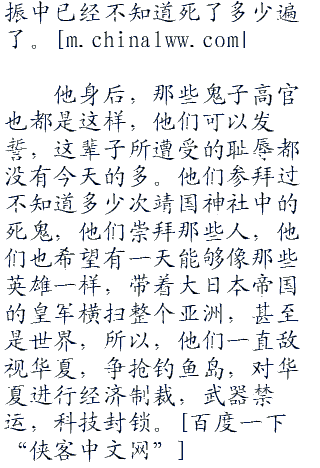 振中已经不知道死了多少遍
了。[m.china1ww.com|
他身后，那些鬼子高官
也都是这样，他们可以发
誓，这辈子所遭受的耻辱都
没有今天的多。他们参拜过
不知道多少次靖国神社中的
死鬼，他们崇拜那些人，他
们也希望有一天能够像那些
英雄一样，带着大日本帝国
的皇军横扫整个亚洲，甚至
是世界，所以，他们一直敌
视华夏，争抢钓鱼岛，对华
夏进行经济制裁，武器禁
运，科技封锁。[百度一下
“侠客中文网”]